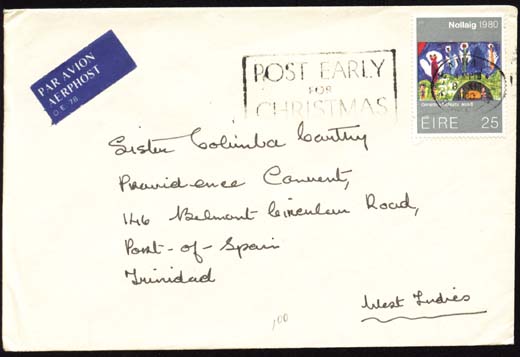 PAR AVION
AERPHOST
D.E. 78
POST EARLY
FOR
CHRISTMAS
Nollaig 1980
ÉIRE 25
Sister Columba Carthy
Providence Convent,
146 Belmont Circular Road,
Port-of-Spain
Trinidad
West Indies